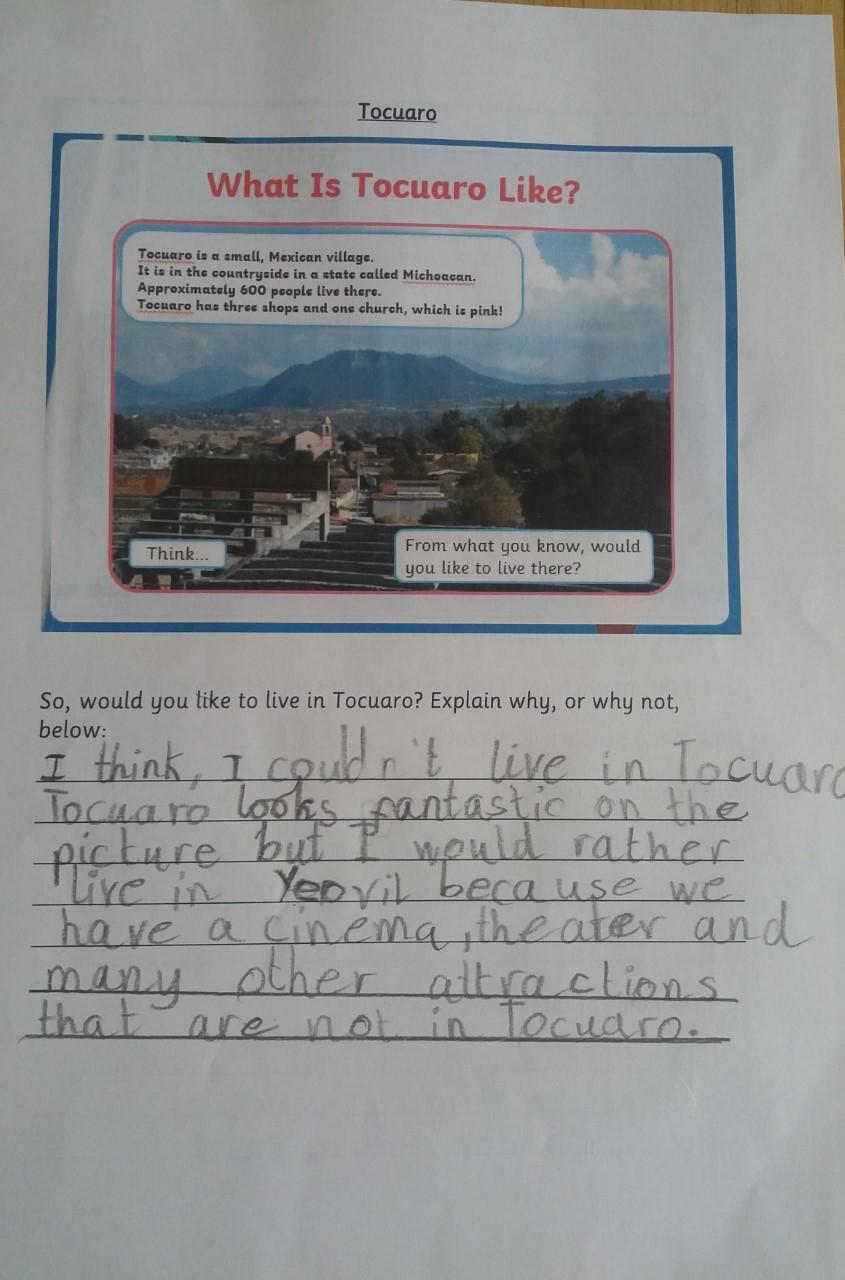 Tocuaro
What Is Tocuaro Like?
Tocuaro is a small, Mexican village.
It is in the countryside in a state called Michoacan.
Approximately 600 people live there.
Tocuaro has three shops and one church, which is pink!
Think...
From what you know, would
you like to live there?
So, would you like to live in Tocuaro? Explain why, or why not,
below:
I think, I couldn't live in Tocuaro
Tocuaro looks fantastic on the
picture but I would rather
live in Yeovil because we
have a cinema, theater and
many other attractions
that are not in Tocuaro.